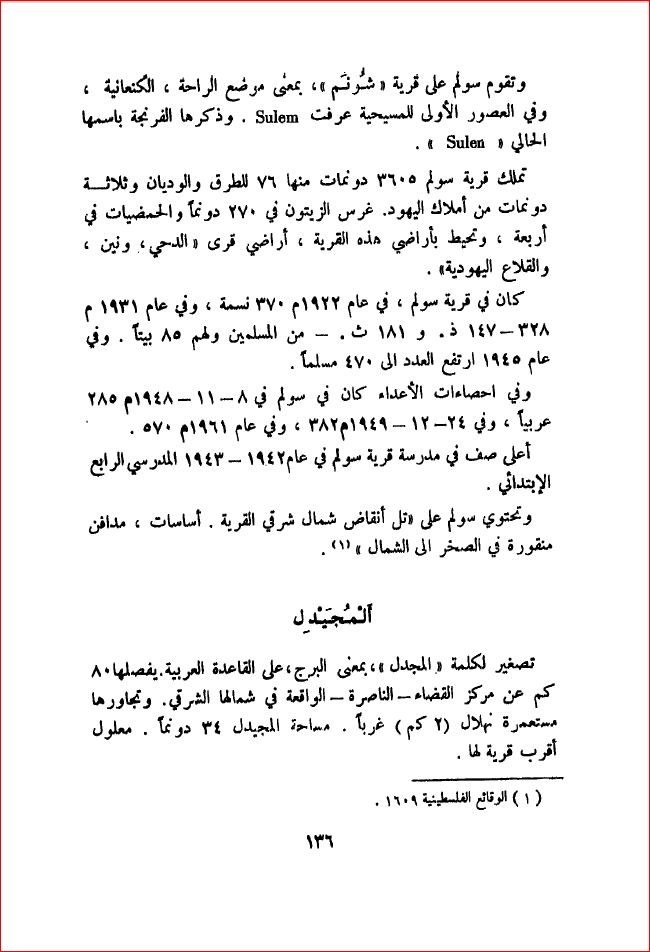 وتقوم سولم على قرية « شُونَم » ، بمعنى موضع الراحة ، الكنعانية ،
وفي العصور الأولى للمسيحية عرفت Sulem . وذكرها الفرنجة باسمها
الحالي « Sulen » .
تملك قرية سولم ٣٦٠٥ دونمات منها ٧٦ للطرق والوديان وثلاثة
دونمات من أملاك اليهود. غرس الزيتون في ٢٧٠ دونماً والحمضيات في
أربعة ، وتحيط بأراضي هذه القرية ، أراضي قرى « الدحي ، ونين ،
والقلاع اليهودية» .
كان في قرية سولم ، في عام ١٩٢٢م ٣٧٠ نسمة ، وفي عام ١٩٣١ م
٣٢٨ – ١٤٧ ذ . و ١٨١ ث . – من المسلمين ولهم ٨٥ بيتاً . وفي
عام ١٩٤٥ ارتفع العدد الى ٤٧٠ مسلماً .
وفي احصاءات الأعداء كان في سولم في ٨ – ١١ – ١٩٤٨م ٢٨٥
عربياً ، وفي ٢٤– ١٢ – ١٩٤٩م٣٨٢ ، وفي عام ١٩٦١م ٥٧٠ .
أعلى صف في مدرسة قرية سولم في عام١٩٤٢ – ١٩٤٣ المدرسي الرابع
الإبتدائي .
وتحتوي سولم على «تل أنقاض شمال شرقي القرية . أساسات ، مدافن
منقورة في الصخر الى الشمال » (١) .
اَلْمُجَيْدِل
تصغير لكلمة « المجدل » ، بمعنى البرج ، على القاعدة العربية. يفصلها ٨٠
كم عن مركز القضاء – الناصرة – الواقعة في شمالها الشرقي. وتجاورها
مستعمرة نهلال (٢ كم) غرباً . مساحة المجيدل ٣٤ دونماً . معلول
أقرب قرية لها .
( ١ ) الوقائع الفلسطينية ١٦٠٩ .
١٣٦